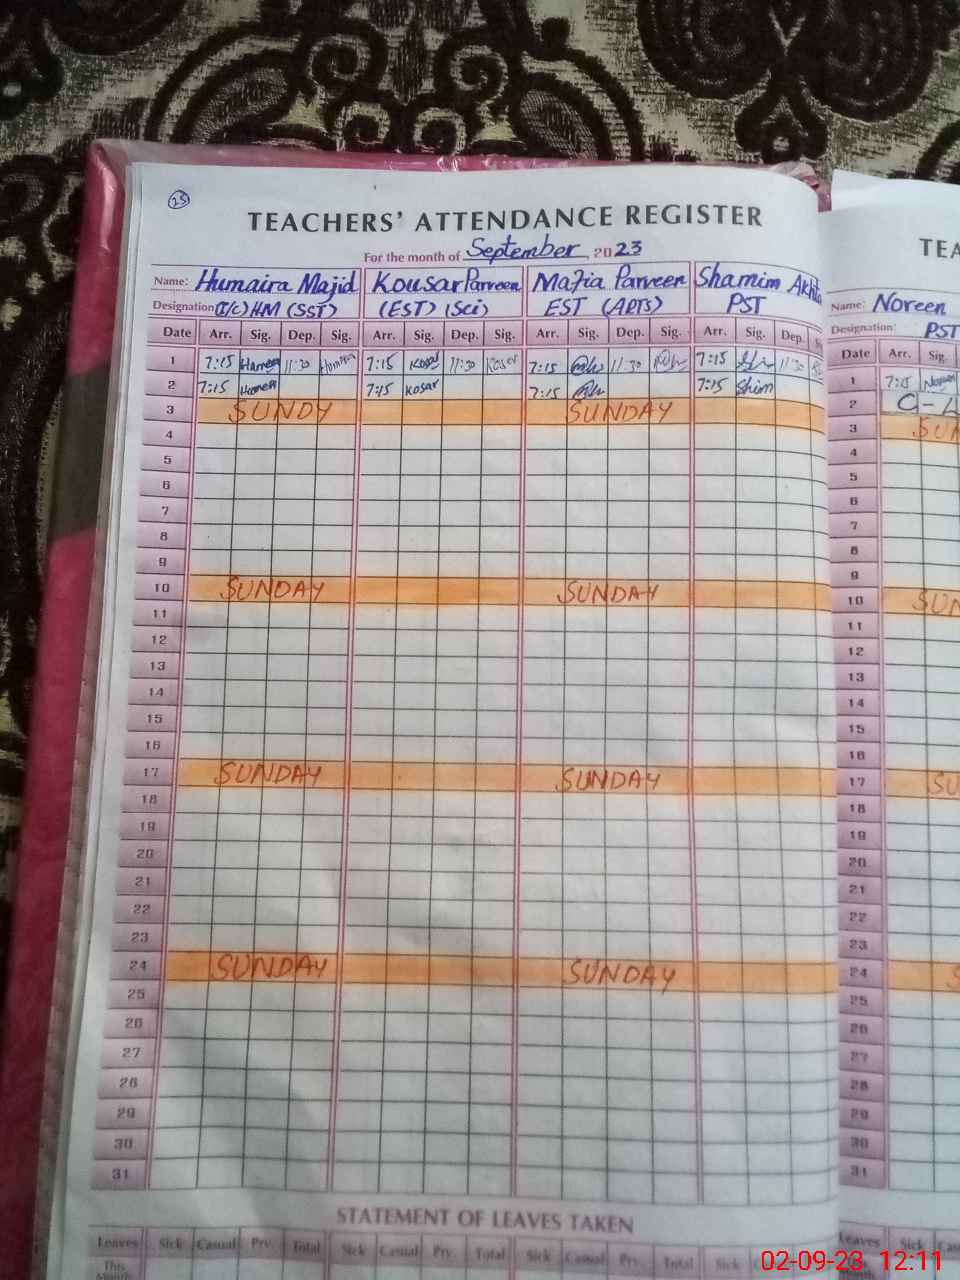 25
TEACHERS' ATTENDANCE REGISTER
For the month of September 2023
Name: Humaira Majid Kousar Parveen Mazia Parveen Shamim Akhta
Designation: (I/C) HM (SST) (EST) (Sci) EST (ARTS) PST
Date Arr. Sig. Dep. Sig. Arr. Sig. Dep. Sig. Arr. Sig. Dep. Sig. Arr. Sig. Dep.
1 7:15 11:30 7:15 Kosar 11:30 Kosar 7:15 11:30 7:15 11:30
2 7:15 7:15 Kosar 7:15 7:15 Shim
3 SUNDY SUNDAY
4
5
6
7
8
9
10 SUNDAY SUNDAY
11
12
13
14
15
16
17 SUNDAY SUNDAY
18
19
20
21
22
23
24 SUNDAY SUNDAY
25
26
27
28
29
30
31
STATEMENT OF LEAVES TAKEN
Leaves Sick Casual Prv. Total Sick Casual Prv. Total Sick Casual Prv. Total Sick Casual
This
Month
TEA
Name: Noreen
Designation: PST
Date Arr. Sig.
1 7:15
2 C-L
3 SUN
4
5
6
7
8
9
10 SUN
11
12
13
14
15
16
17 SU
18
19
20
21
22
23
24 S
25
26
27
28
29
30
31
Leaves Sick Cas
02-09-23 12:11